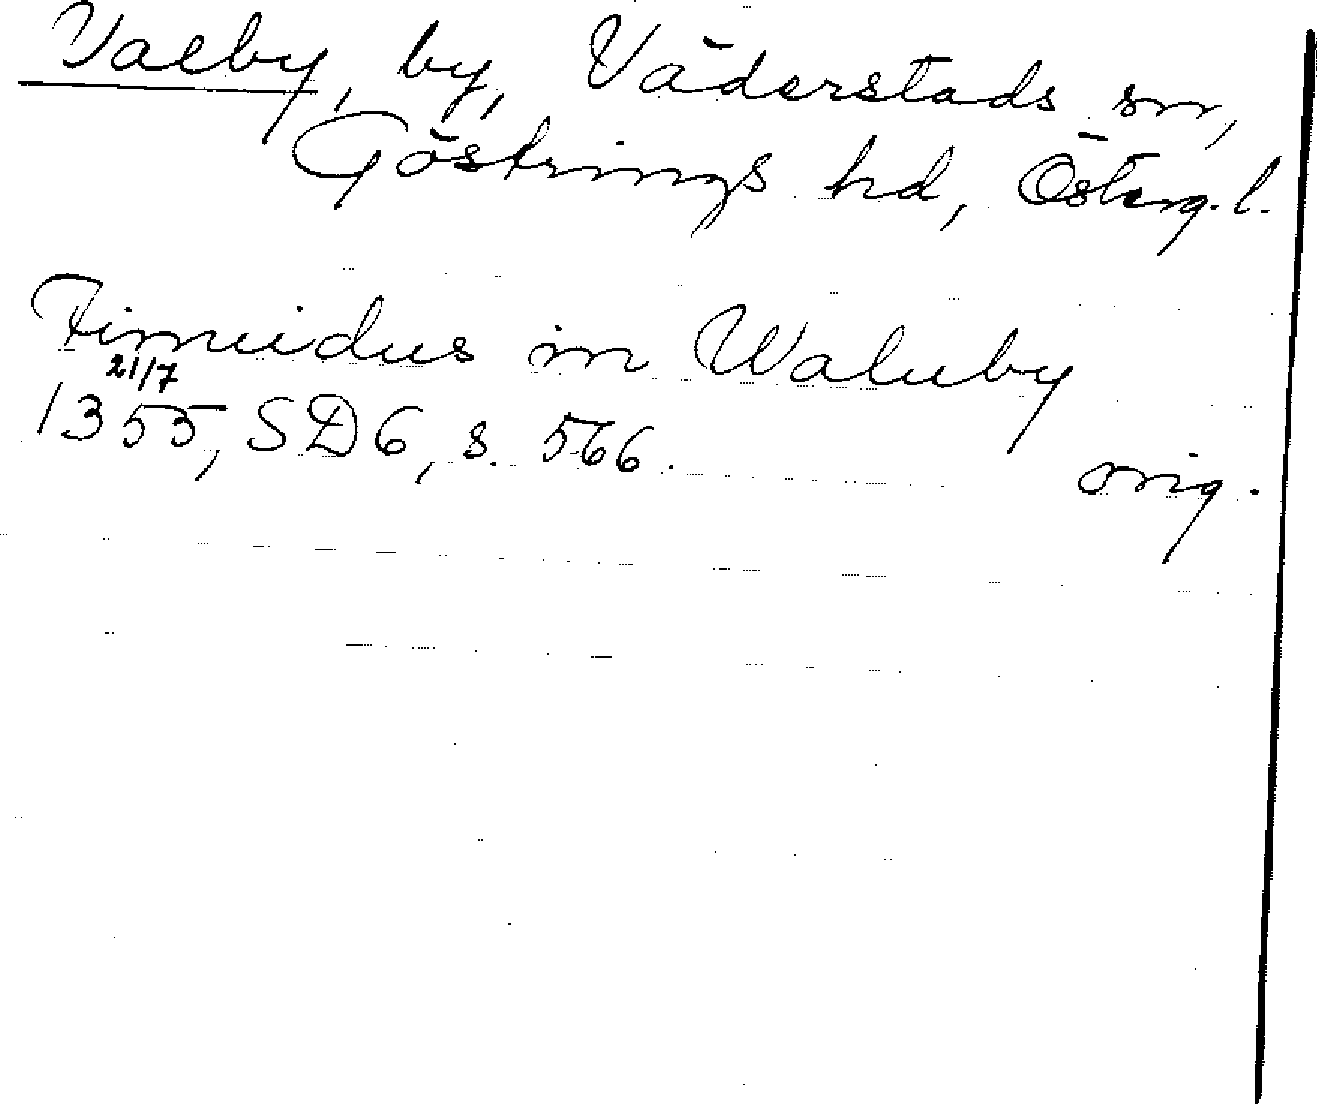 Valby, by, Väderstads sn,
Göstrings hd, Österg. l.
Finuidus in Waluby
21/7
1355, SD6, s. 566.
orig.